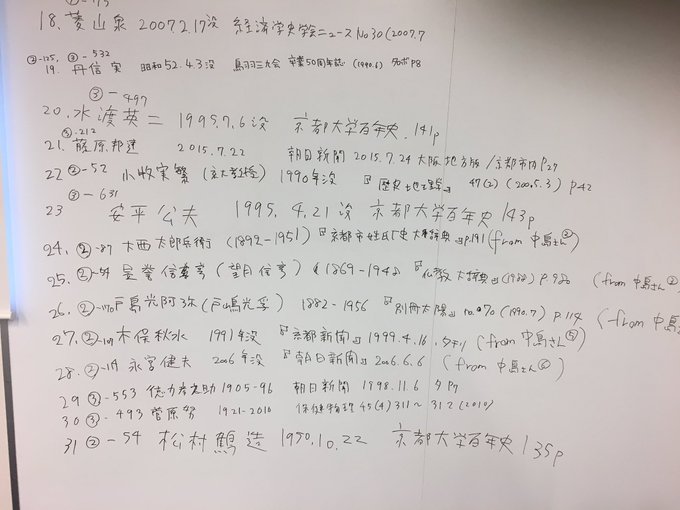 18. 菱山泉 2007.2.17没 経済学史学会ニュース No30(2007.7
②-125, ③-532
19. 丹信実 昭和52.4.3没 鳥羽三六会 卒業50周年誌 (1990.6) P8
③-497
20. 水渡英二 1995.7.6没 京都大学百年史 141p
③-212
21. 藤原邦達 2015.7.22 朝日新聞 2015.7.24 大阪地方版/京都市内 P27
22 ②-52 小牧実繁 1990年没 『歴史地理学』 47(2) (2005.3) p42
③-631
23 安平公夫 1995.4.21没 京都大学百年史 143p
24. ②-87 大西太郎兵衛 (1892-1951) 『京都市姓氏歴史人物大辞典』p.191 (from 中島さん②)
25. ②-54 昱誉信亨 (望月信亨) (1869-1948) 『仏教大辞典』(1988) p.980 (from 中島さん
26. ②-170 戸島光阿弥 (戸嶋光孚) 1882-1956 『別冊太陽』 no.70 (1990.7) p.114 (from 中島
27. ②-109 木俣秋水 1991年没 『京都新聞』 1999.4.16. 夕刊 (from 中島さん⑤)
28. ②-119 永宮健夫 2006年没 『朝日新聞』 2006.6.6 (from 中島さん⑥)
29 ③-553 徳力孝之助 1905-96 朝日新聞 1898.11.6 夕 P7
30 ③-493 菅原努 1921-2010 保健物理 45(4) 311~312 (2010)
31 ②-54 松村鶴造 1950.10.22 京都大学百年史 135p